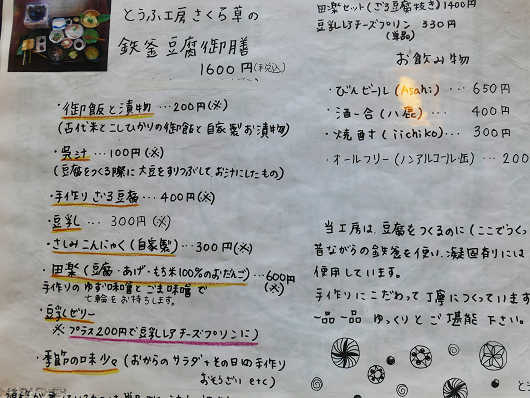 とうふ工房さくら草の
鉄釜豆腐御膳
1600円(税込)
・御飯と漬物…200円(※)
(古代米とこしひかりの御飯と自家製お漬物)
・呉汁…100円(※)
(豆腐をつくる際に大豆をすりつぶして、お汁にしたもの)
・手作りざる豆腐…400円(※)
・豆乳…300円(※)
・さしみこんにゃく(自家製)…300円(※)
・田楽(豆腐・あげ・もち米100%のおだんご)…600円(※)
手作りのゆず味噌とごま味噌で
七輪をお持ちします。
・豆乳ゼリー
※プラス200円で豆乳レアチーズプリンに)
・季節の味少々(おからのサラダ+その日の手作り
おそうざいetc)
田楽セット(ざる豆腐抜き)1400円
豆乳レアチーズプリン 330円
(単品)
お飲み物
・びんビール(Asahi)…650円
・酒一合(八鹿)…400円
・焼酎(iichiko)…300円
・オールフリー(ノンアルコール缶)…200
当工房は、豆腐をつくるのに(ここでつく
昔ながらの鉄釜を使い、凝固有りには
使用しています。
手作りにこだわって丁寧につくっています
一品一品 ゆっくりとご堪能下さい。